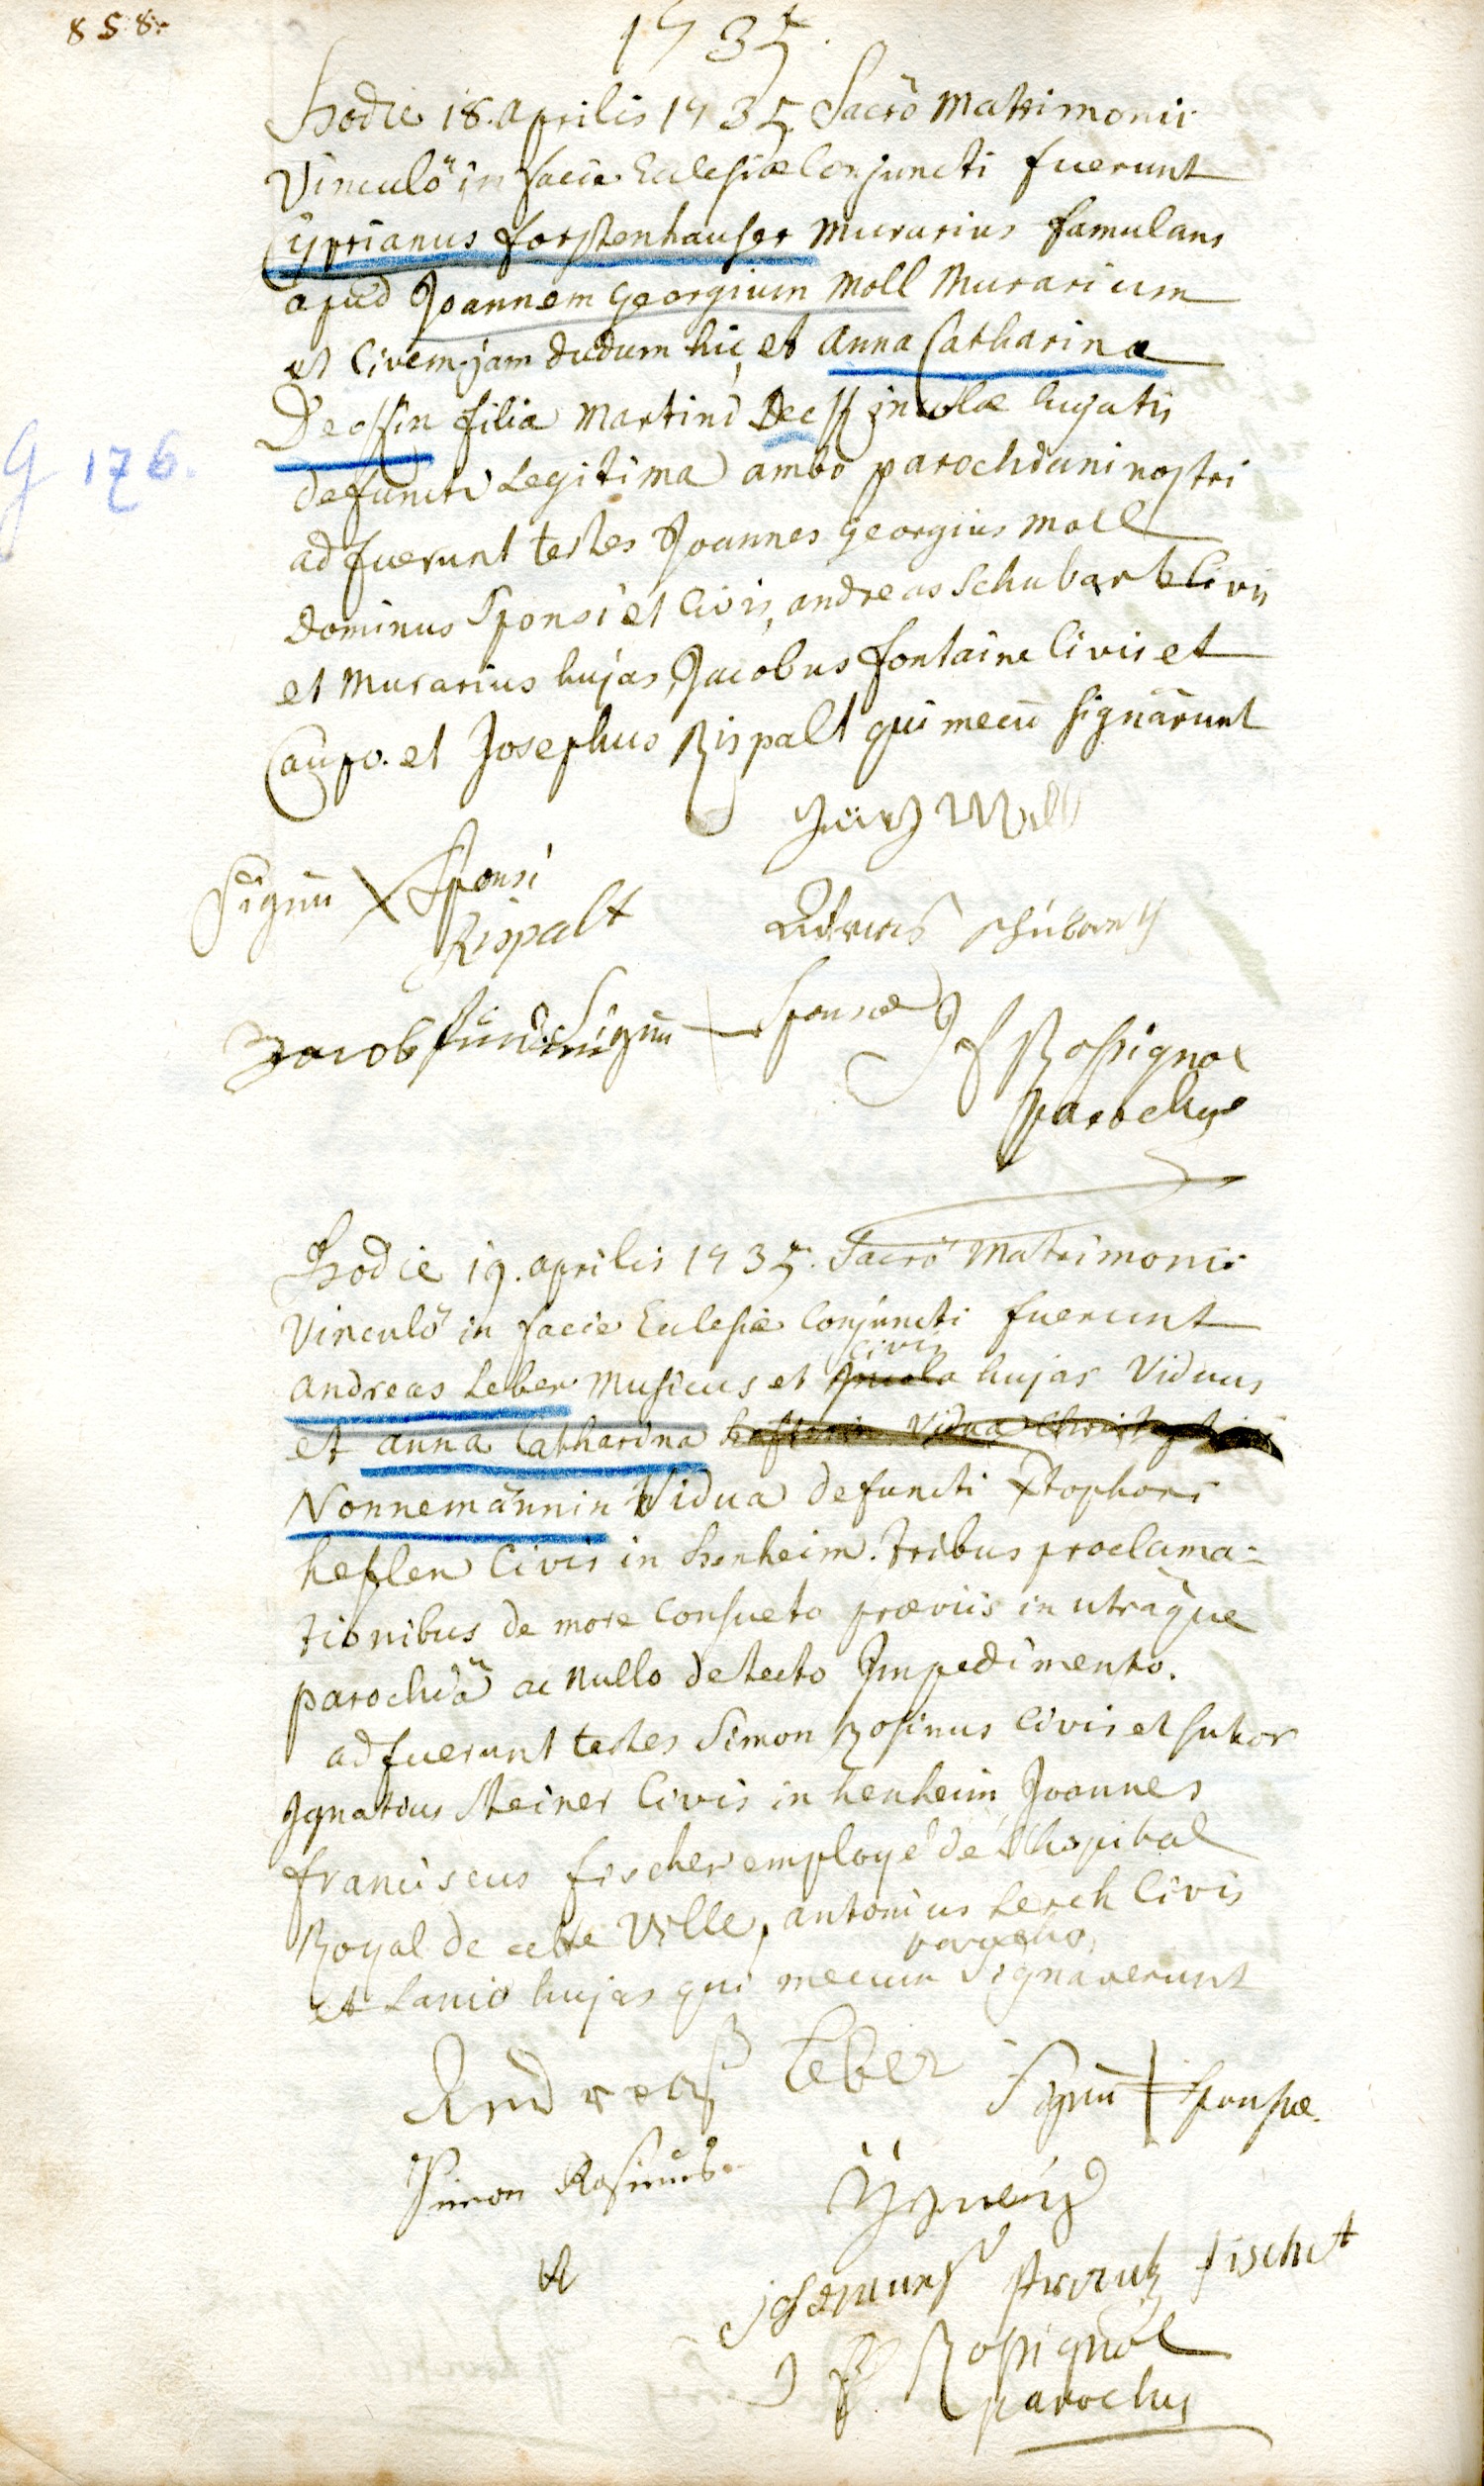 858.
1735.
Hodie 18. aprilis 1735 Sacrô Matrimonii
Vinculô in facie Ecclesiæ Conjuncti fuerunt
Cyprianus forstenhauser murarius famulans
apud Joannem georgium Moll Murarium
et Civem jam dudum hic, et anna Catharina
Deossin filia Martini Decss incolæ hujatis
G 176.
defuncti Legitima ambo parochiani nostri
adfuerunt testes Joannes georgius moll
dominus Sponsi et Civis, andreas Schubart Civis
et Murarius hujas, Jacobus fontaine Civis et
Caupo. et Josephus Rispalt qui mecū signârunt
Jürg Moll
Signū X Sponsi
Rispalt
Andreas schubart
Jacob
Signū + Sponsæ
J f Rossignol
parochus
Hodie 19. aprilis 1735. Sacrô Matrimonii
Vinculô in facie Ecclesiæ Conjuncti fuerunt
civis
andreas Leber Musicus et Incola hujas Viduus
et anna Catharina Vidua
Nonnemännin Vidua defuncti Xtophori
heslen Civis in henheim. tribus proclama-
tionibus de more Consueto præviis in utrâque
parochiâ ac Nullo detecto Impedimento.
adfuerunt testes Simon Rosinus Civis et sutor
Ignatius Steiner Civis in henheim Joannes
franciscus fischer employé de l'hopital
Royal de cette Ville, antonius Lerch Civis
et Lanio hujas qui mecum Signaverunt
Andreas Leber
Signū + sponsæ.
Simon Rosinus
Johannes frantz fischer
J f Rossignol
parochus